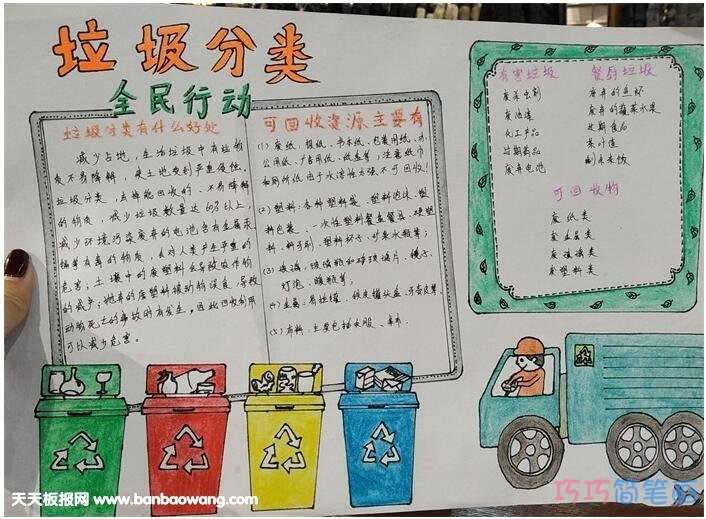 垃圾分类
全民行动
垃圾分类有什么好处
减少占地，生活垃圾中有些物
质不易降解，使土地受到严重侵蚀。
垃圾分类，去掉能回收的、不易降解
的物质，减少垃圾数量达60%以上。
减少环境污染废弃的电池含有金属汞、
镉等有毒的物质，会对人类产生严重的
危害；土壤中的废塑料会导致农作物
的减产；抛弃的废塑料被动物误食，导致
动物死亡的事故时有发生，因此回收利用
可以减少危害。
可回收资源主要有
(1) 废纸：报纸、书本纸、包装用纸、办
公用纸、广告用纸、纸盒等；注意纸巾
和厕所纸由于水溶性太强不可回收！
(2) 塑料：各种塑料袋、塑料泡沫、塑
料包装、一次性塑料餐盒餐具、硬塑
料、料牙刷、塑料杯子、矿泉水瓶等；
(3) 玻璃：玻璃瓶和碎玻璃片、镜子、
灯泡、暖瓶等；
(4) 金属：易拉罐、铁皮罐头盒、牙膏皮等。
(5) 布料：主要包括衣服、
有害垃圾
废杀虫剂
废油漆
化工产品
过期药品
废弃电池
餐厨垃圾
废弃的
废弃的蔬菜水果
过期食品
茶叶渣
剩菜
可回收物
废纸类
废金属类
废玻璃类
废塑料类
天天板报网 www.banbaowang.com
巧巧简笔画